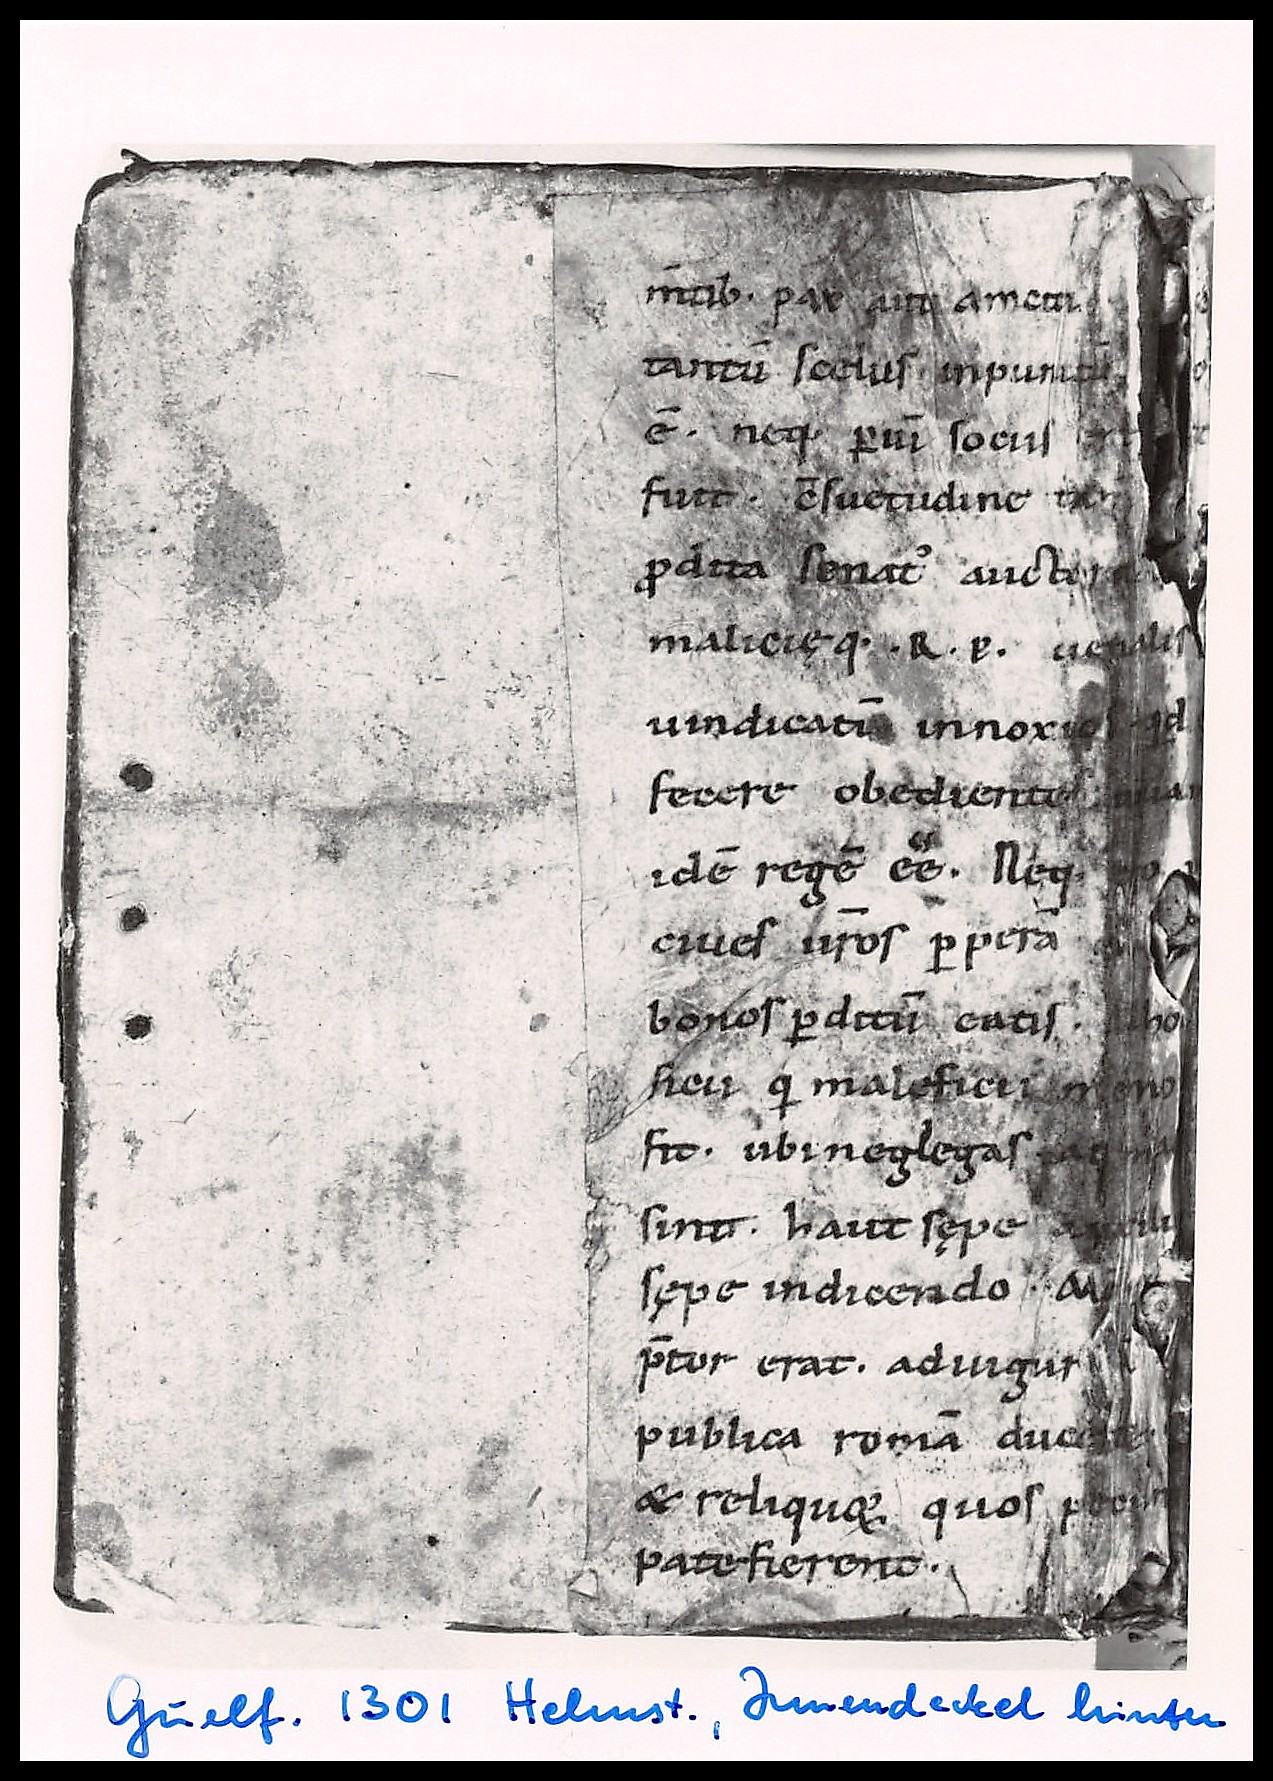 m̅tib· par aut amicu
tantū scelus inpunitū
ē· neq· ꝑuī socius
fuit· c̄suetudine
ꝓdita senat᾿ auctor
malicięq· ·R·P· uenalis
uindicatū innoxios qd
fecere obedientes
idē regē eē· Neq·
ciues ur̅os ꝑperā
bonos ꝑditū eatis·
ficii q̇ maleficii
fit· ubi neglegas
sint· haut sępe
sępe in dicendo·
p̅tor erat· ad iugur
publica romā
& reliquoꝝ quos
patefierent·
Guelf. 1301 Helmst., Innendeckel hinten